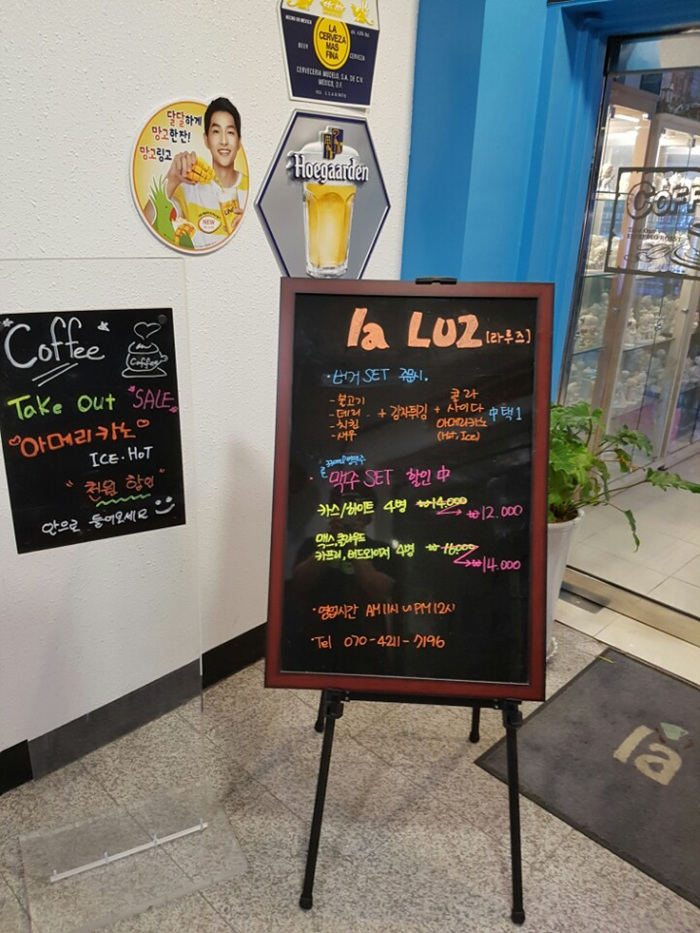 LA
CERVEZA
MAS
FINA
BEER
CERVEZA
CERVECERIA MODELO, S.A. DE C.V.
MÉXICO, D.F.
달달하게
망고한잔!
망고링고
NEW
Hoegaarden
COFF
Coffee
Coffee
Take Out SALE
아메리카노
ICE·HOT
"천원 할인"
안으로 들어오세요
la LUZ [라루즈]
·버거 SET 주문시.
-불고기
-데리
-치킨
-새우
+ 감자튀김 +
콜라
사이다
아메리카노
(Hot, Ice)
中 택 1
·맥주 SET 할인 中
카스/하이트 4병 ₩14.000
₩12.000
맥스,클라우드
카프리,버드와이저 4병 ₩16000
₩14.000
·영업시간 AM 11시 ~ PM 12시
·Tel 070-4211-7196
la